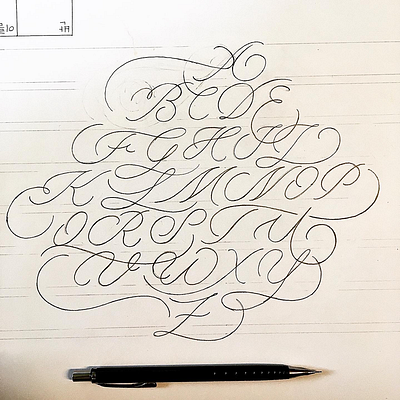 A
BCDE
FGHIJ
KLMNOP
QRSTU
VWXY
Z